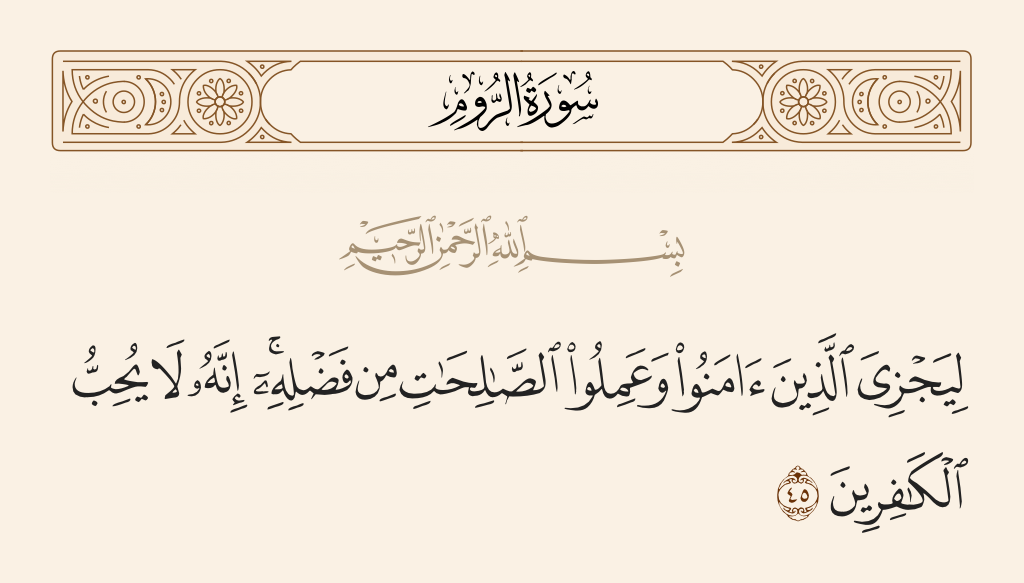 سُورَةُ الرُّومِ
بِسْمِ ٱللَّهِ ٱلرَّحْمَٰنِ ٱلرَّحِيمِ
لِيَجْزِىَ ٱلَّذِينَ ءَامَنُوا۟ وَعَمِلُوا۟ ٱلصَّٰلِحَٰتِ مِن فَضْلِهِۦٓ ۚ إِنَّهُۥ لَا يُحِبُّ
ٱلْكَٰفِرِينَ ٤٥